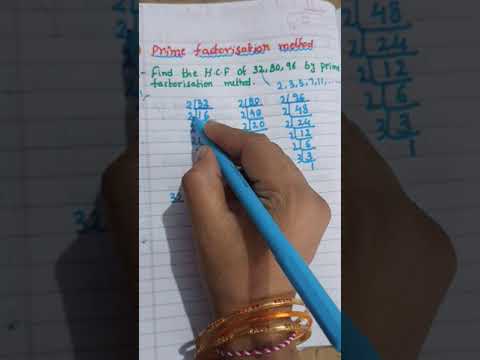 Prime factorisation method
Find the H.C.F of 32, 80, 96 by prime
factorisation method. 2, 3, 5, 7, 11, ....
2 32
2 16
2 80
2 40
2 20
2 96
2 48
2 24
2 12
2 6
3 3
1
32
48
2 24
2 12
2 6
3 3
1